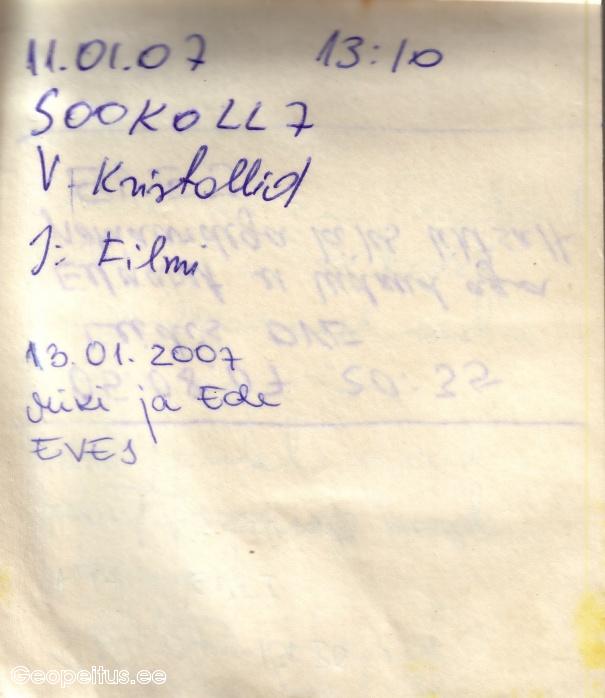 11.01.07 13:10
SOOKOLL7
V: Kristallid
J: Filmi
13.01.2007
Miki ja Ede
EVES
Geopeitus.ee